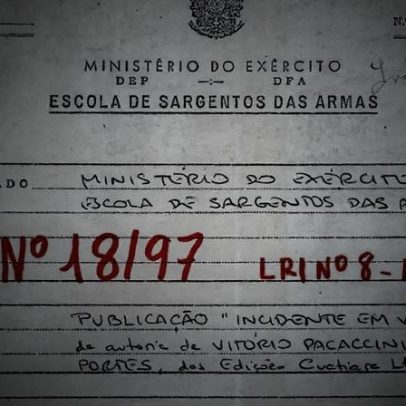 N.
MINISTÉRIO DO EXÉRCITO
DEP —:— DFA
ESCOLA DE SARGENTOS DAS ARMAS
ADO MINISTÉRIO DO EXÉRCITO
ESCOLA DE SARGENTOS DAS A
Nº 18/97 LRI Nº 8-1
PUBLICAÇÃO "INCIDENTE EM V
de autoria de VITÓRIO PACACCINI
PORTES, das Edições Cuatiara L